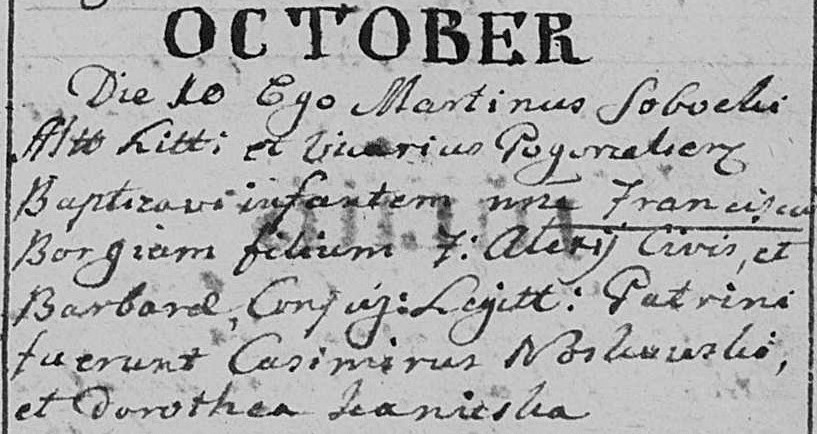 OCTOBER
Die 10 Ego Martinus Sobocki
Altt Litti et Vicarius Pogorzelscen
Baptizavi infantem nne Franciscum
Borgiam filium F: Alexij Civis, et
Barbarae, Conjug: Legitt: Patrini
fuerunt Casimirus Noskowski,
et Dorothea